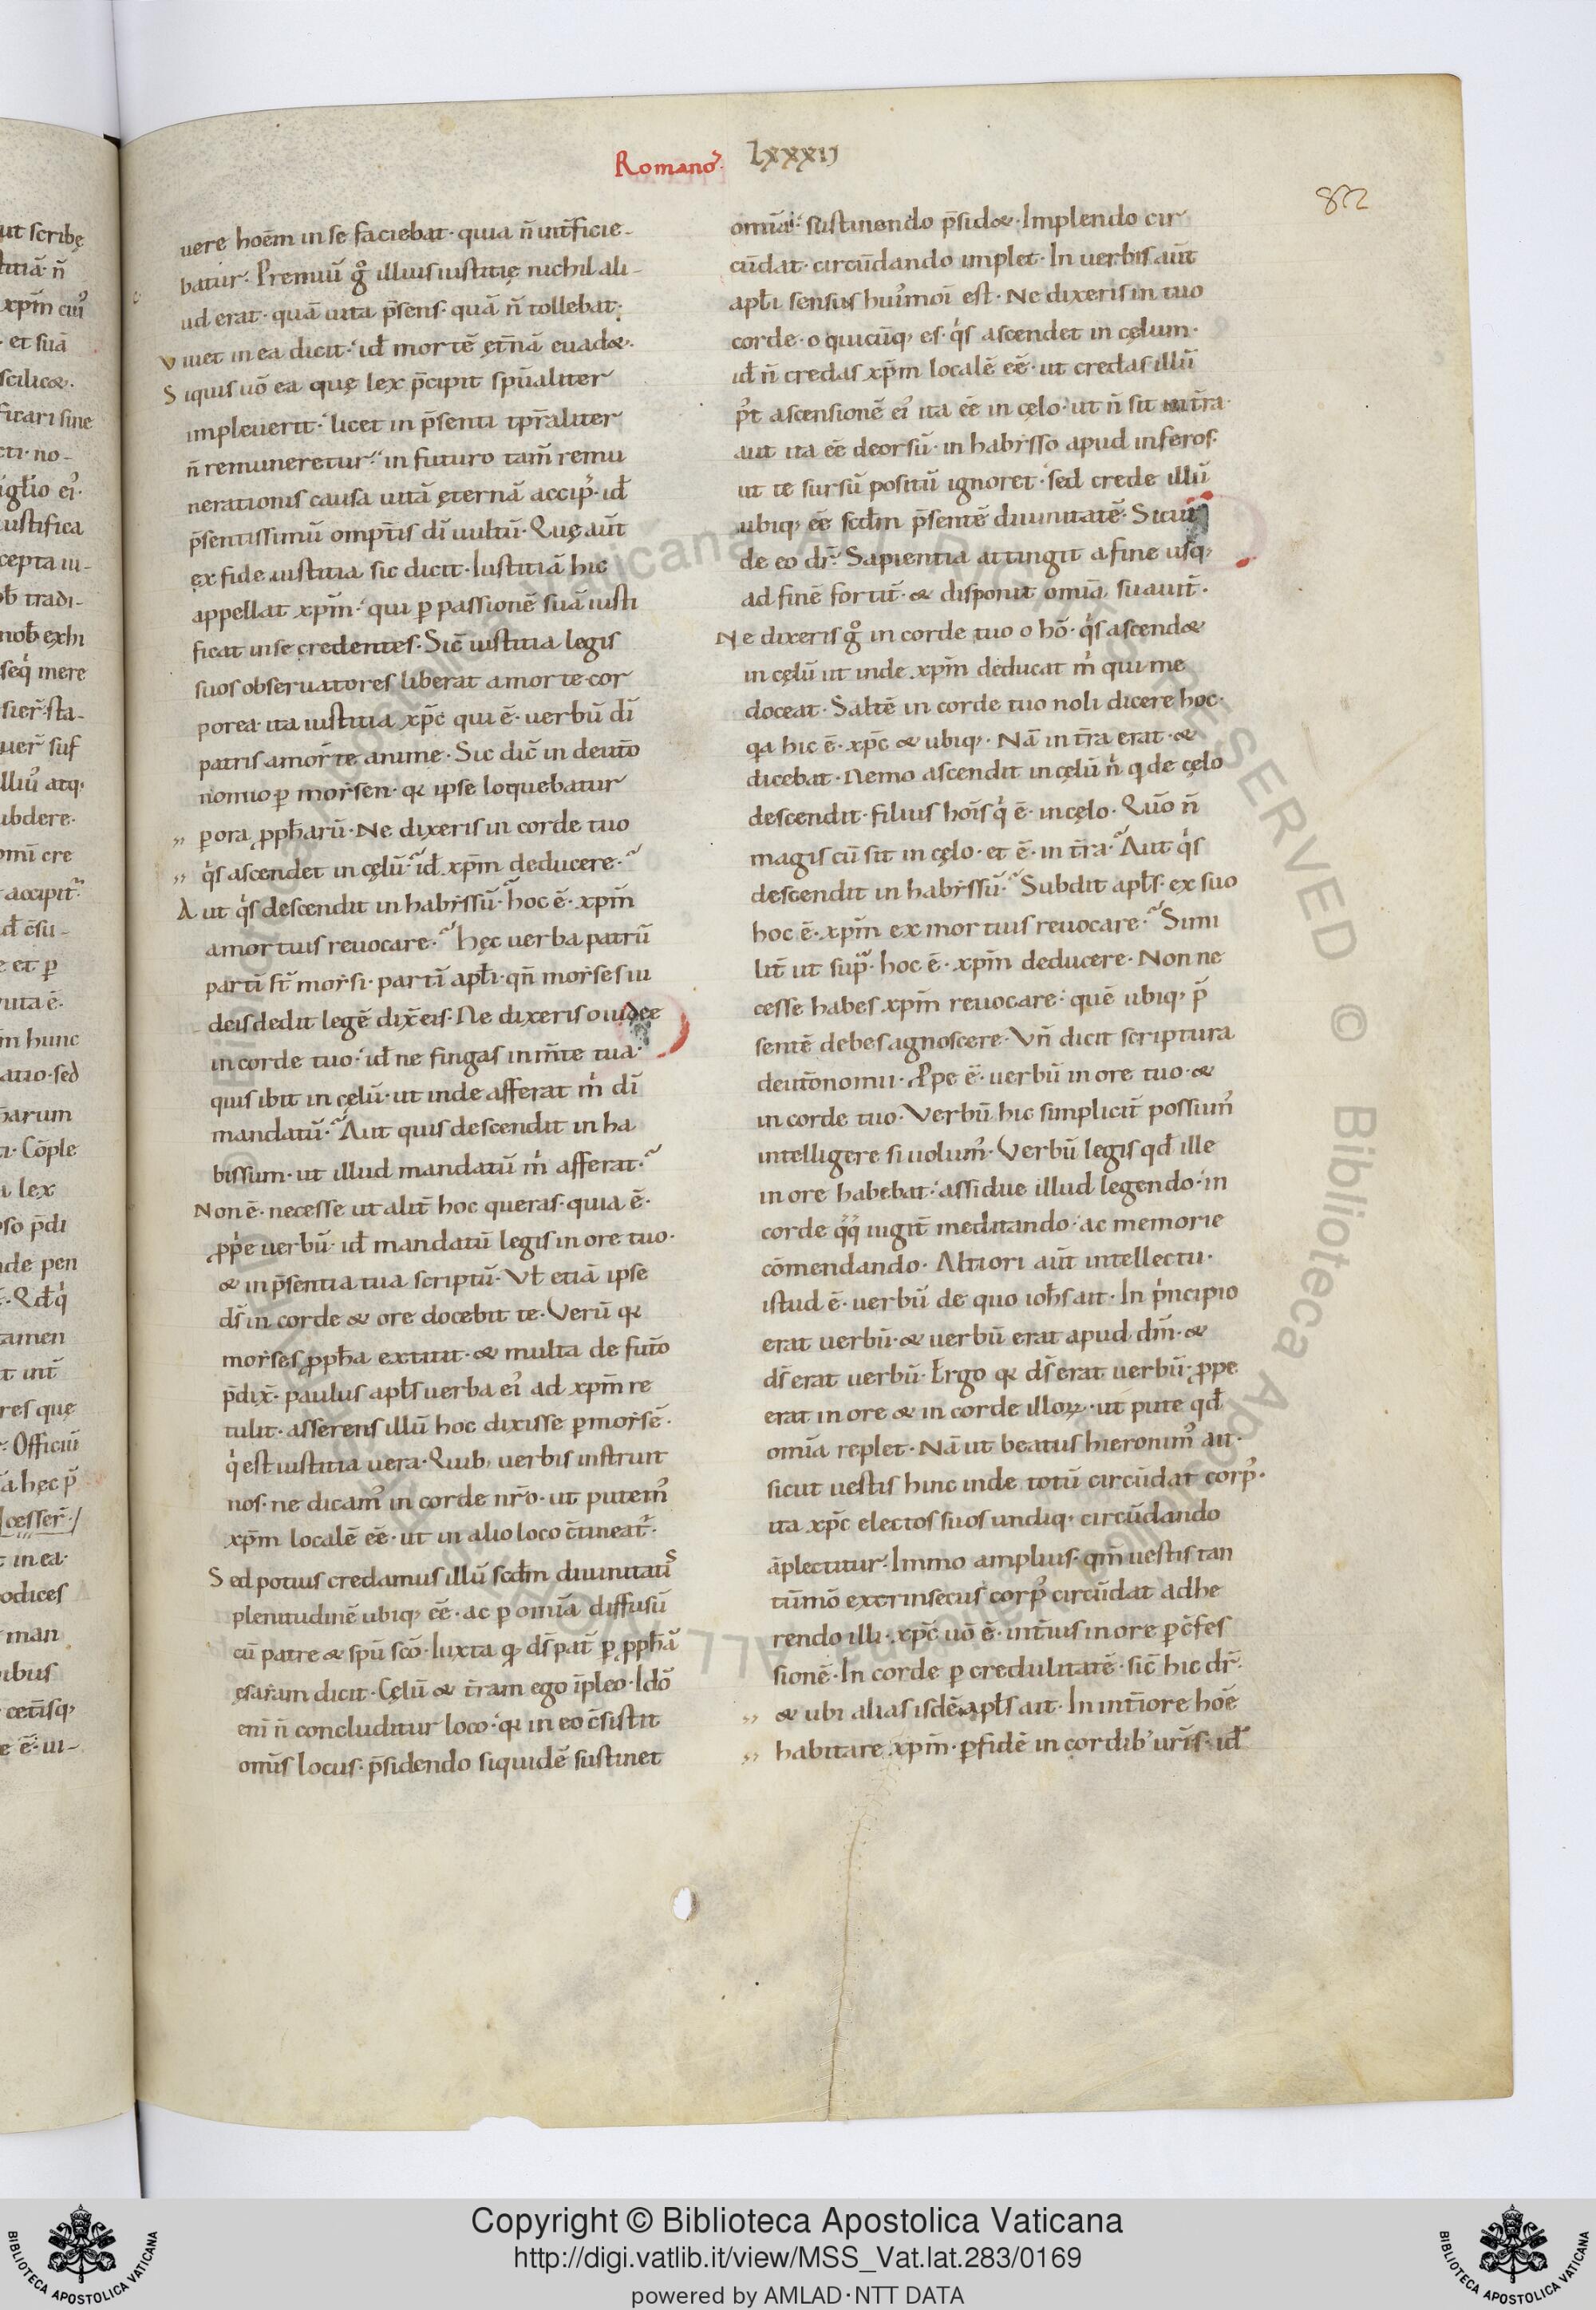 Romanoꝝ. lxxxij
82
uere hoēm in se faciebat· quia n̄ int̄ficie-
batur· Premiū gͦ illius iustitię nichil ali-
ud erat· quā uita p̄sens· quā n̄ tollebat·
Viuet in ea dicit· id̄ mortē ęt̄nā euad&·
Siquis uō ea quę lex p̄cipit sp̄ualiter
impleuerit· licet in p̄senti tp̄raliter
n̄ remuneretur· in futuro tam̄ remu
nerationis causa uitā ęternā accip̄· id̄
p̄sentissimū omp̄tis dī uultū· Quę aūt
ex fide iustitia sic dicit· Iustitiā hic
appellat xp̄m· qui ꝑ passionē suā iusti
ficat in se credentes· Sic̄ iustitia legis
suos obseruatores liberat a morte cor
porea· ita iustitia xp̄c qui ē· uerbū dī
patris a morte anime· Sic dic̄ in deut̄o
nomio ꝑ moẏsen· qꝛ ipse loquebatur
„ ꝑ ora ꝓph̄arū· Ne dixeris in corde tuo
„ qͥs ascendet in cęlū· id̄ xp̄m deducere·
Aut qͥs descendit in habẏssū· hoc ē· xp̄m
a mortuis reuocare· Hęc uerba patrū
partī st̄ moẏsi· partī apl̄i· qn̄ moẏses iu
deis dedit legē dix̄ eis· Ne dixeris o iudee
in corde tuo· id̄ ne fingas in m̄te tua·
quis ibit in cęlū· ut inde afferat mͥ dī
mandatū· Aut quis descendit in ha
bissum· ut illud mandatū mͥ afferat·
Non ē· necesse ut alit̄ hoc queras· quia ē·
ꝓpͥe uerbū· id̄ mandatū legis in ore tuo·
& in p̄sentia tua scriptū· Vl̄ etiā ipse
ds̄ in corde & ore docebit te· Verū qꝛ
moẏses ꝓph̄a extitit· & multa de fut̄o
p̄dix̄· paulus apl̄s uerba eiꝰ ad xp̄m re
tulit· asserens illū hoc dixisse ꝑ moẏsē·
qͥ est iustitia uera· Quib; uerbis instruit
nos· ne dicamꝰ in corde nr̄o· ut putemꝰ
xp̄m localē eē· ut in alio loco c̄tineat᷑·
Sed potius credamus illū scd̄m diuinitatis
plenitudinē ubiq; eē· ac ꝑ omīa diffusū
cū patre & sp̄u scō· Iuxta qꝫ ds̄ pat̄ ꝑ ꝓph̄ā
ęsaiam dicit· Cęlū & t̄ram ego īpleo· Idō
eni n̄ concluditur loco· qꝛ in eo c̄sistit
omīs locus· p̄sidendo siquidē sustinet
omīa· sustinendo p̄sid&· Implendo cir
cūdat· circūdando implet· In uerbis aūt
apl̄i sensus huiꝰmoī est· Ne dixeris in tuo
corde· o quicūq; es· qͥs ascendet in cęlum·
id̄ n̄ credas xp̄m localē eē· ut credas illū
pꝰt ascensionē eiꝰ ita eē in cęlo· ut n̄ sit in t̄ra·
aut ita eē deorsū· in habẏsso apud inferos·
ut te sursū positū ignoret· sed crede illū
ubiq; eē scd̄m p̄sentē diuinitatē· Sicut
de eo dr̄· Sapientia attingit a fine usq;
ad finē fortit̄· & disponit omīa suauit̄·
Ne dixeris gͦ in corde tuo o hō· qͥs ascend&
in cęlū ut inde xp̄m deducat mͥ qui me
doceat· Saltē in corde tuo noli dicere hoc·
qa hic ē· xp̄c & ubiq;· Nā in t̄ra erat· &
dicebat· Nemo ascendit in cęlū nͥ q de cęlo
descendit· filius hoīs qͥ ē· in cęlo· Quō n̄
magis cū sit in cęlo· et ē· in t̄ra· Aut qͥs
descendit in habẏssū· Subdit apl̄s· ex suo
hoc ē· xp̄m ex mortuis reuocare· Simi
lit̄ ut supͣ· hoc ē· xp̄m deducere· Non ne
cesse habes xp̄m reuocare· quē ubiq; p̄
sentē debes agnoscere· Vn̄ dicit scriptura
deut̄onomii· Prpe ē· uerbū in ore tuo· &
in corde tuo· Verbū hic simplicit̄ possumꝰ
intelligere si uolumꝰ· Verbū legis qd̄ ille
in ore habebat· assidue illud legendo· in
corde qͦqꝫ iugit̄ meditando· ac memorie
cōmendando· Altiori aūt intellectu·
istud ē· uerbū de quo ioh̄s ait· In pͥncipio
erat uerbū· & uerbū erat apud dm̄· &
ds̄ erat uerbū· Ergo qꝛ ds̄ erat uerbū· ꝓpe
erat in ore & in corde illoꝝ· ut pute qd̄
omīa replet· Nā ut beatus hieronimꝰ ait·
sicut uestis hinc inde totū circūdat corpꝰ·
ita xp̄c electos suos undiq; circūdando
āplectitur· Immo amplius· qm̄ uestis tan
tūmō extrinsecus corpꝰ circūdat adhe
rendo illi· xp̄c uō ē· int̄ius in ore ꝑ c̄fes
sionē· In corde ꝑ credulitatē· sic̄ hic dr̄·
„ & ubi alias isdē apl̄s ait· In int̄iore hoē
„ habitare xp̄m· ꝑ fidē in cordibꝰ ur̄is· id̄
Copyright © Biblioteca Apostolica Vaticana
http://digi.vatlib.it/view/MSS_Vat.lat.283/0169
powered by AMLAD·NTT DATA
BIBLIOTECA APOSTOLICA VATICANA
BIBLIOTECA APOSTOLICA VATICANA